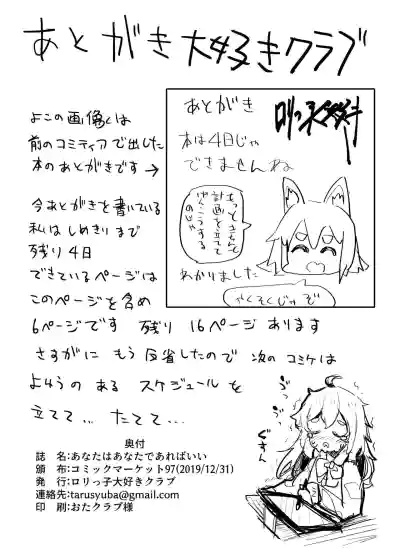 あとがき大好きクラブ
よこの画像くは
前のコミティアで出した
本のあとがきです→
今あとがきを書いている
私はしめきりまで
残り4日
できているページは
このページを含め
6ページです 残り 16ページあります
さすがに もう反省したので 次のコミケは
よゆうのある スケジュールを
立てて… たてて…
あとがき
ロリっ子大好き
本は4日じゃ
できませんね
もっときちんと
計画を立てて
けんこうする
のじゃ
わかりました
やくそくじゃぞ
ぶつ
ぶつ
ぐすん
奥付
誌 名:あなたはあなたであればいい
頒 布:コミックマーケット97(2019/12/31)
発 行:ロリっ子大好きクラブ
連絡先:tarusyuba@gmail.com
印 刷:おたクラブ様